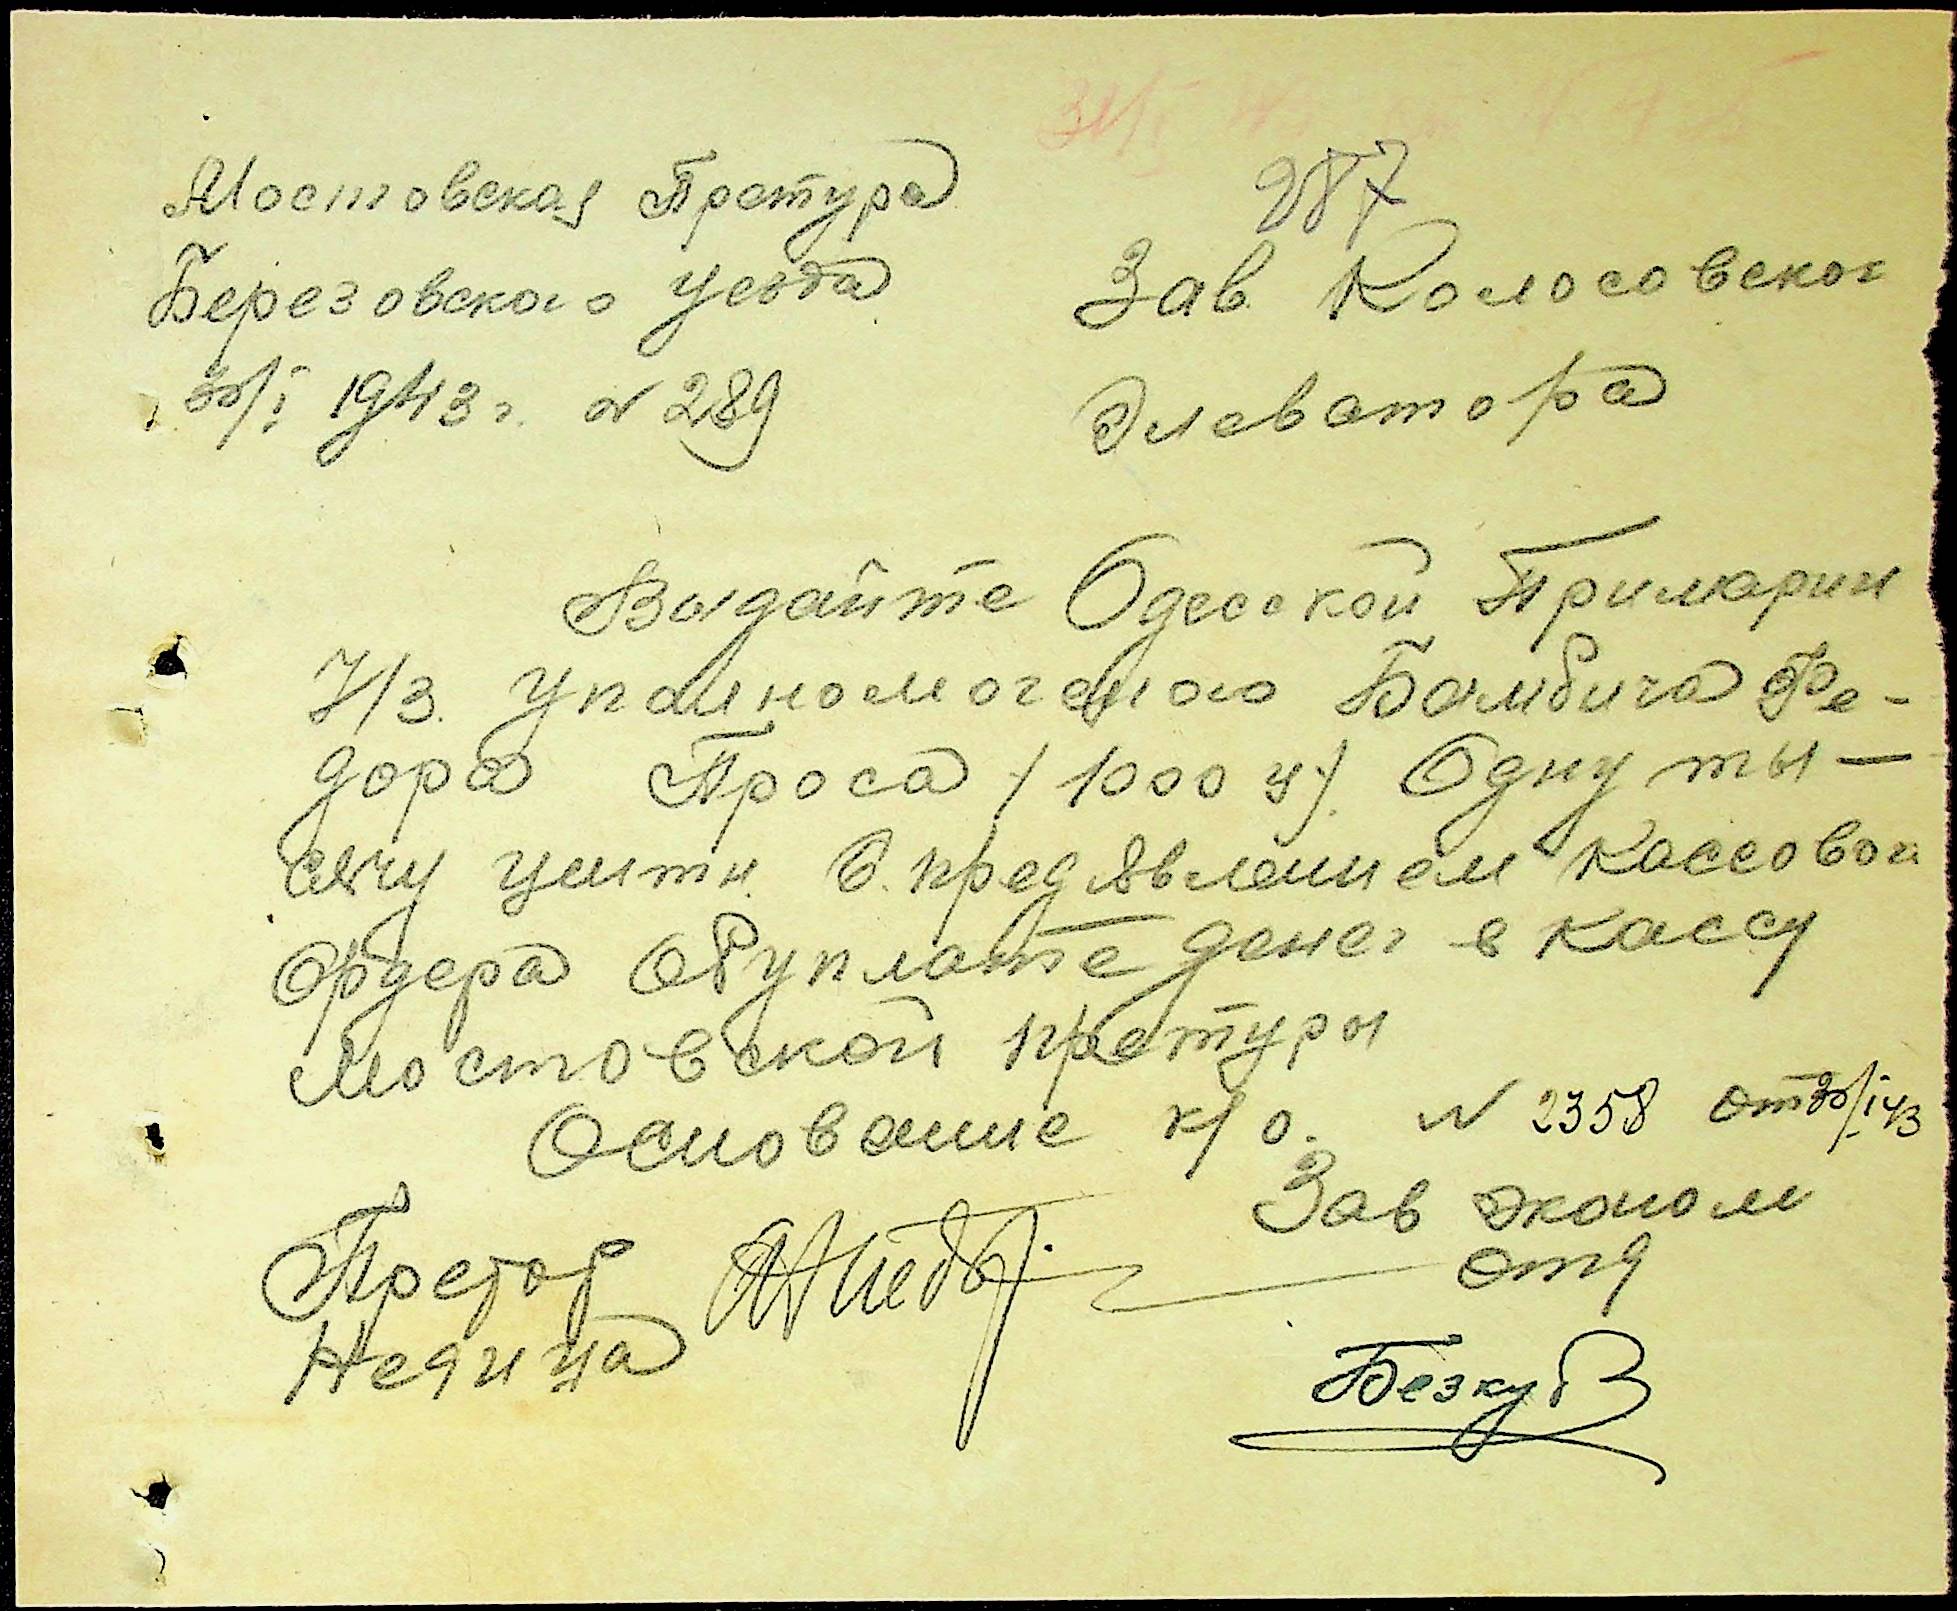 287
Мостовская Претура
Березовского уезда
30/I 1943 г. № 289
Зав Колосовског
Элеватора
Выдайте Одесской Примарии
Ч/З. уполномоченого Бамбича Фе-
дора Проса / 1000 ц/. Одну ты-
сячу центн. С. предявлением кассовог
Ордера Об уплате денег в кассу
Мостовской претуры
Основание к/о. № 2358 от 30/I 43
Зав эконом
отд
Претор
Недица
Безкуб